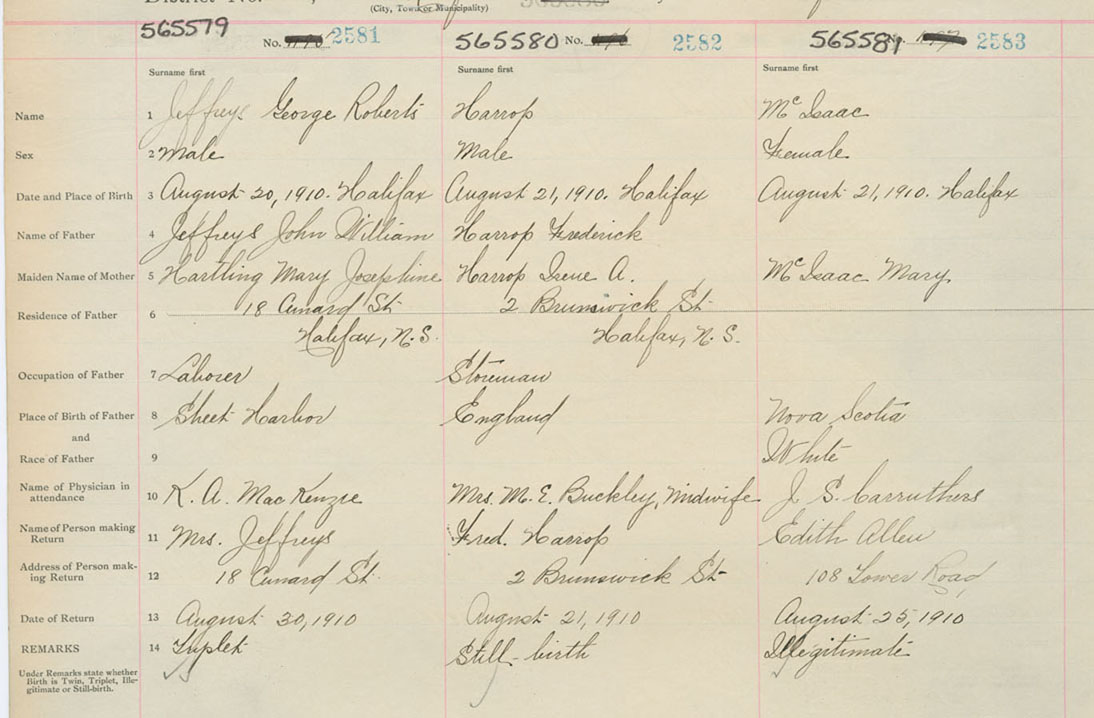 District No.
(City, Town or Municipality)
565579 No. 2581 565580 No. 2582 565581 No. 2583
Surname first Surname first Surname first
Name 1 Jeffreys George Roberts Harrop McIsaac
Sex 2 Male Male Female
Date and Place of Birth 3 August 20, 1910. Halifax August 21, 1910. Halifax August 21, 1910. Halifax
Name of Father 4 Jeffreys John William Harrop Frederick
Maiden Name of Mother 5 Hartling Mary Josephine Harrop Irene A. McIsaac Mary
Residence of Father 6 18 Cunard St. 2 Brunswick St
Halifax, N.S. Halifax, N.S.
Occupation of Father 7 Laborer Storeman
Place of Birth of Father 8 Sheet Harbor England Nova Scotia
and
Race of Father 9 White
Name of Physician in
attendance 10 K. A. MacKenzie Mrs. M. E. Buckley, Midwife J. S. Carruthers
Name of Person making
Return 11 Mrs. Jeffreys Fred. Harrop Edith Allen
Address of Person mak-
ing Return 12 18 Cunard St. 2 Brunswick St 108 Lower Road
Date of Return 13 August 30, 1910 August 21, 1910 August 25, 1910
REMARKS 14 Triplet Still-birth Illegitimate
Under Remarks state whether
Birth is Twin, Triplet, Ille-
gitimate or Still-birth.